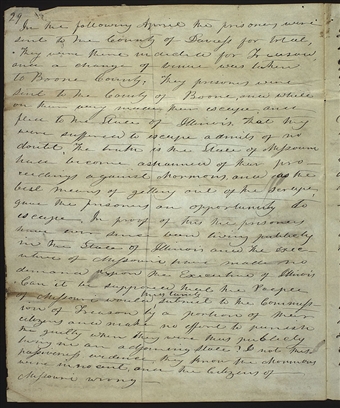 29
In the following April the prisoners were
sent to the County of Daviess for trial
They were there indicted for Treason
and a change of venue was taken
to Boone County. The prisoners were
sent to the County of Boone, and while
on their way made their escape and
fled to the State of Illinois, That they
were suffered to escape admits of no
doubt. The truth is the State of Missouri
had become ashamed of their pro=
ceedings against Mormons, and as the
best means of getting out of the scrape,
gave the prisoners an opportunity to
escape. In proof of this the prisoners
have ever since been living publicly
in the State of Illinois and the exec
utive of Missouri have made no
demand upon the Executive of Illinois
Can it be supposed that the People
of Missouri would thus tamely submit to the Commiss=
ion of Treason by a portion of their
citizens and make no effort to punish
the guilty when they were thus publicly
living in an adjoining State? Is not this
passiveness evidence they knew the Mormons
were innocent, and the citizens of
Missouri wrong